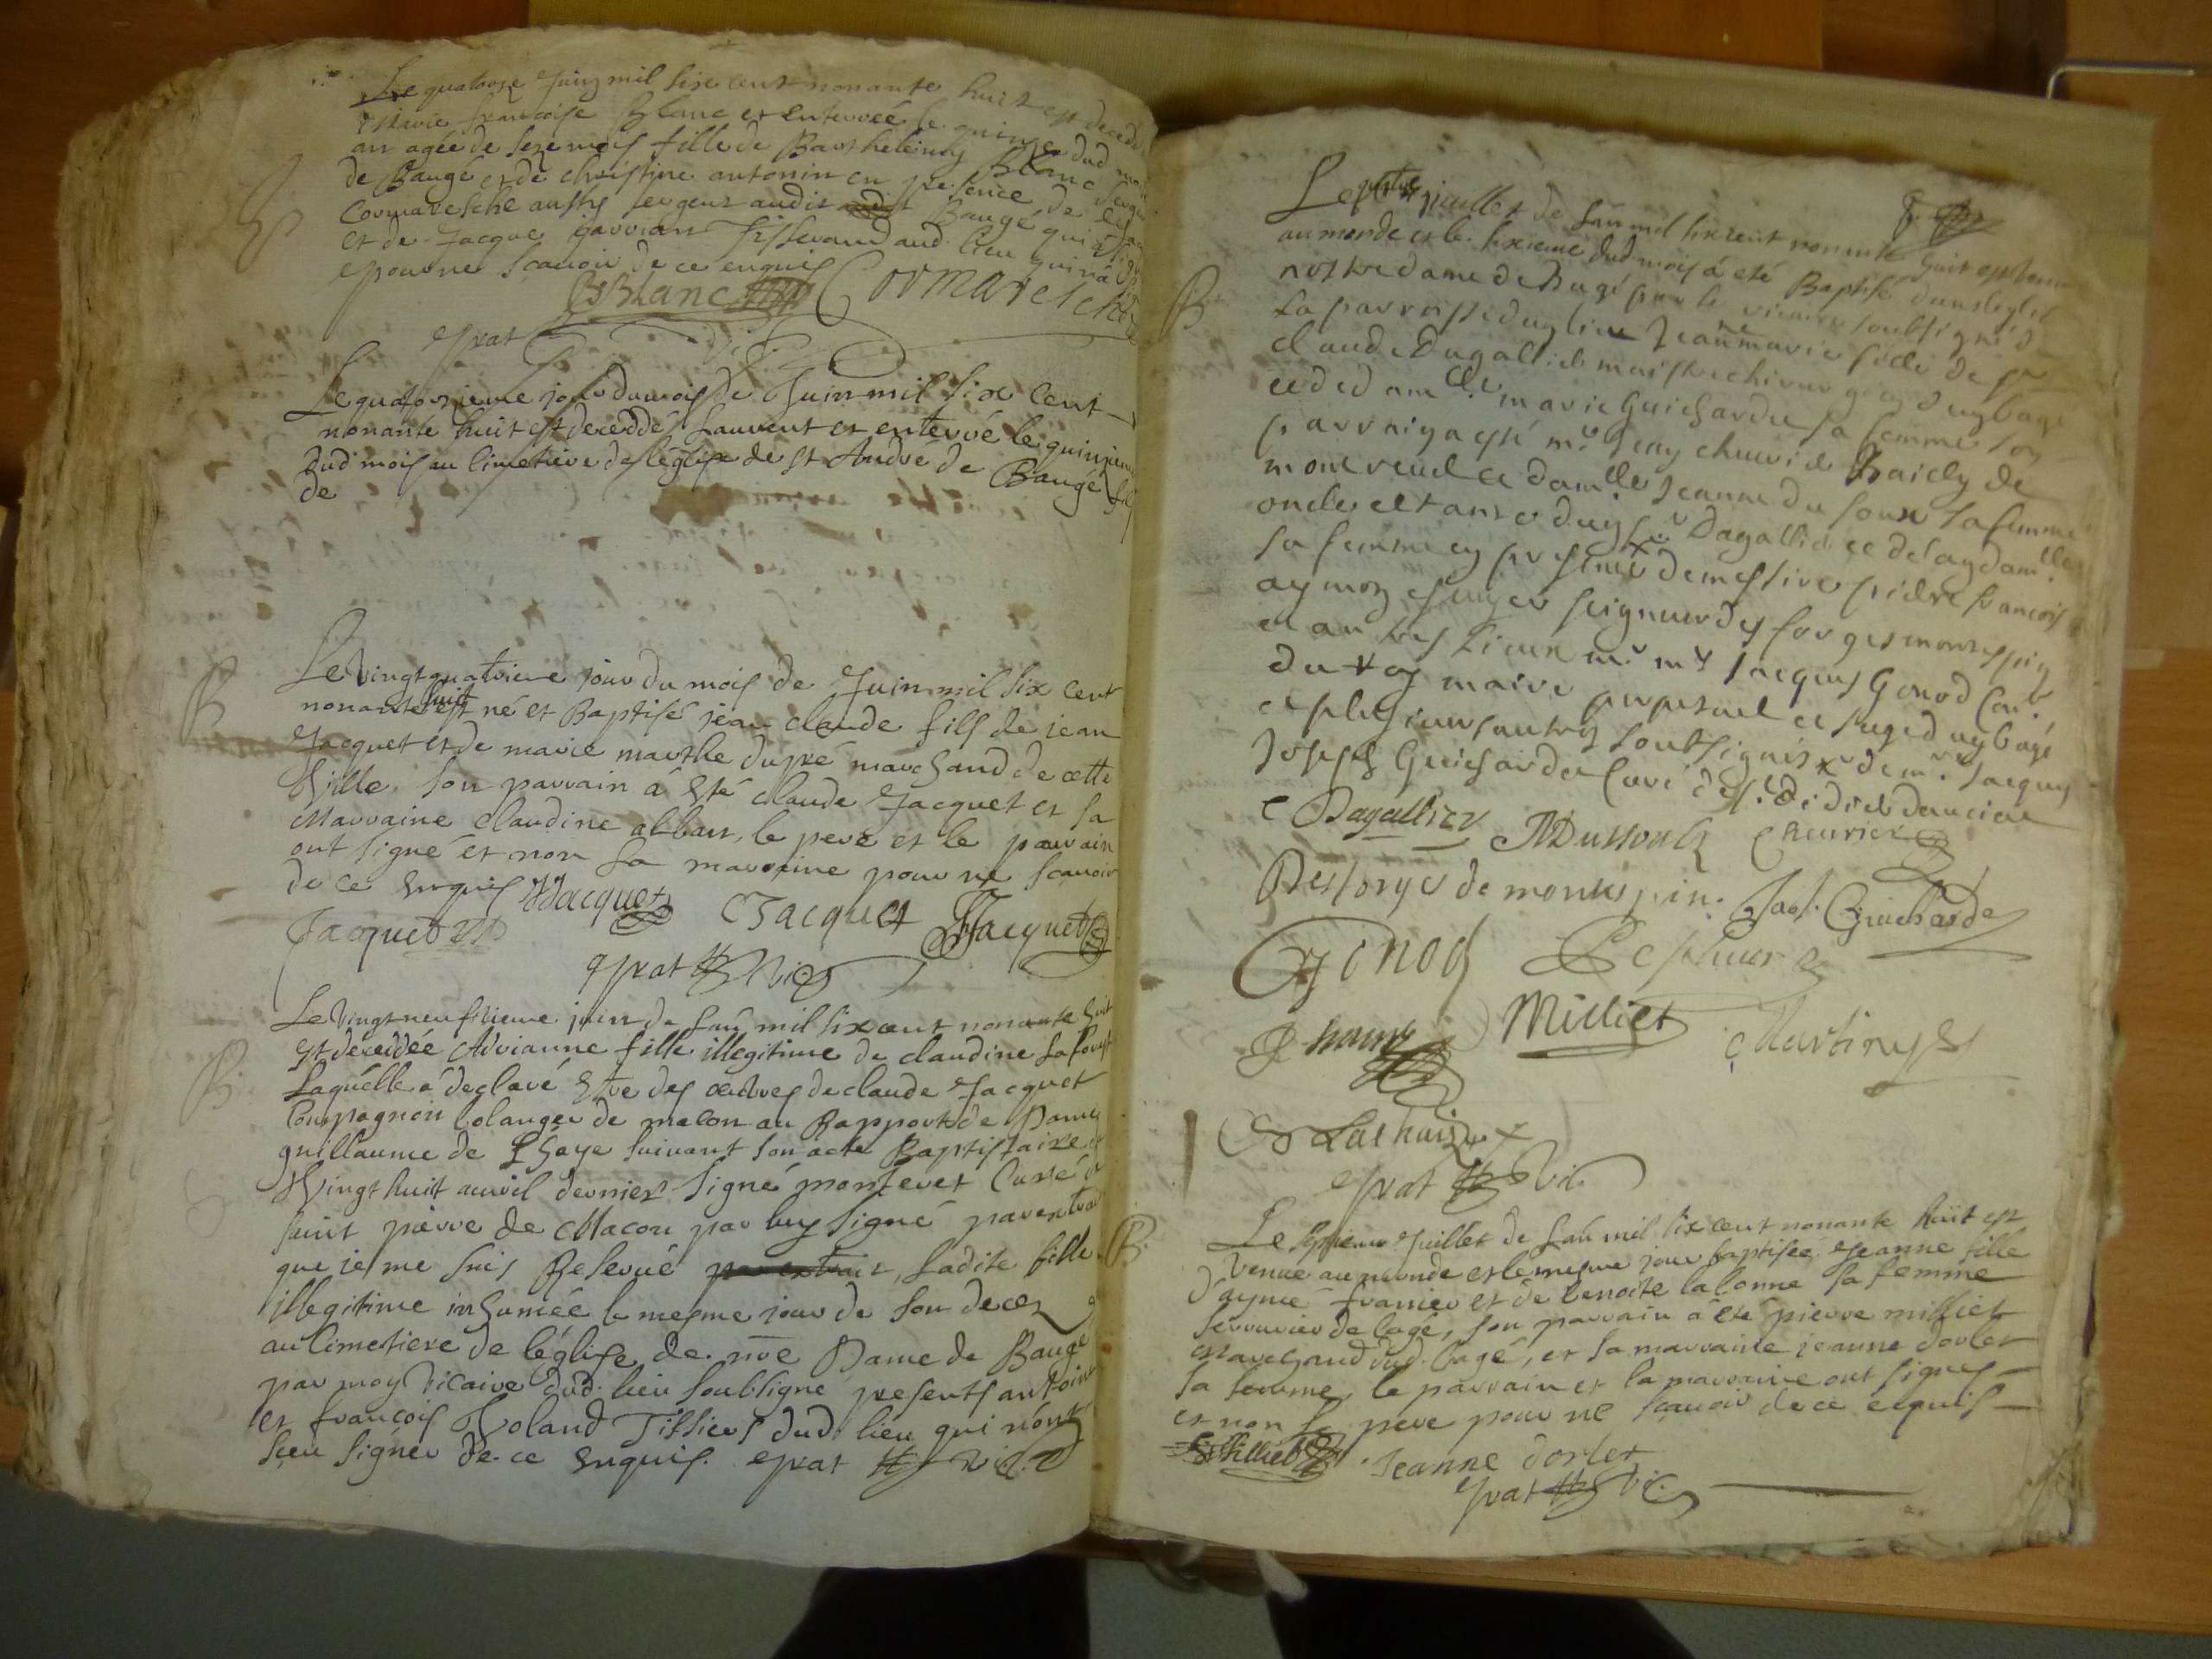 Le quatorze Juing mil six cent nonante huit est decedé
Marie françoise Blanc et enterrée le quinze dud mois
an agée de seze mois fille de Barthelemy Blanc sergen
de Baugé et de christine antonin en presence de
Cormaresche aussy sergent audit Baugé qui
et de Jacque tisserand aud. lieu qui n'a
pour ne sçavoir de ce enquis
B Blanc Cormaresche
prat
Le quatorzieme jour du mois de Juin mil six cent
nonante huit est decedé Laurent et enterré le quinzieme
dud mois au cimetiere de léglise de St André de Baugé fils
de
B
Le vingt quatrieme jour du mois de Juin mil six cent
nonante huit est né et Baptisé jean claude fils de jean
Jacquet et de marie marthe dupré marchand de cette
Ville, son parrain à esté claude Jacquet et sa
Marraine claudine abbast, le pere et le parrain
ont signé et non la marraine pour ne scavoir
de ce enquis Jacquet CJacquet Jacquet
Jacquet
prat Vic
B
Le vingt neufvieme juin de lan mil six cent nonante huit
est decedée Adrianne fille illegitime de claudine laforest
Laquelle à declaré estre des oeuvres de claude Jacquet
Compagnon bolanger de macon au Rapport de Dame
guillaume de Lhaye suivant son acte Baptistaire du
Vingt huit auvril dernier signé monteret Curé de
saint pierre de Macon par luy signé par extrait
que je me suis Reservé par extrait, ladite fille
illegitime inhumée le mesme jour de son deces
au cimetiere de léglise de nre Dame de Baugé
par moy vicaire dud. lieu soubsigné presents antoine
et françois Voland Tissiers dud lieu qui nont
sceu signer de ce enquis. prat Vic.
B
Le quatre juillet de lan mil six cent nonante huit est venue
au monde et le sixieme dud mois à eté Baptisé dans leglise
nostre dame de Bagé par le vicaire soubsigné de
la parroisse dud lieu Jeanne marie fille de sr
claude Dagallier maistre chirurgien dud bagé
et de damlle marie Guicharde sa femme son
parrain a esté mr Jean chevrier Bailly de
montrevel et damlle Jeanne du four sa femme
oncle et tante dud sr Dagallier et de lad damlle
sa femme en presence x de messire piere francois
aymon escuyer seigneur des forges montespin
et autres lieux mr mr Jacques Gonod Conr
du roy maire perpetuel et juge dud bagé
et plusieurs autres soubsignés x de mre Jacques
Joseph Guichardet Curé de st didier daussiat
C Dagallier JDufour Chevrier
Desforges de montespin. Jos. Guichardet
Gonod Lefheur
Milliet Martin
Lachaize
prat Vic.
B.
Le septieme Juillet de lan mil six cent nonante huit est
venue au monde et le mesme jour baptisée Jeanne fille
d'aymé franier et de benoite labonne sa femme
serrurier de bagé, son parrain à eté pierre milliet
marchand dud. bagé, et sa marraine jeanne dorlet
sa femme, le parrain et la marraine ont signés
et non le pere pour ne sçavoir de ce enquis
P Milliet Jeanne dorlet
prat Vic.